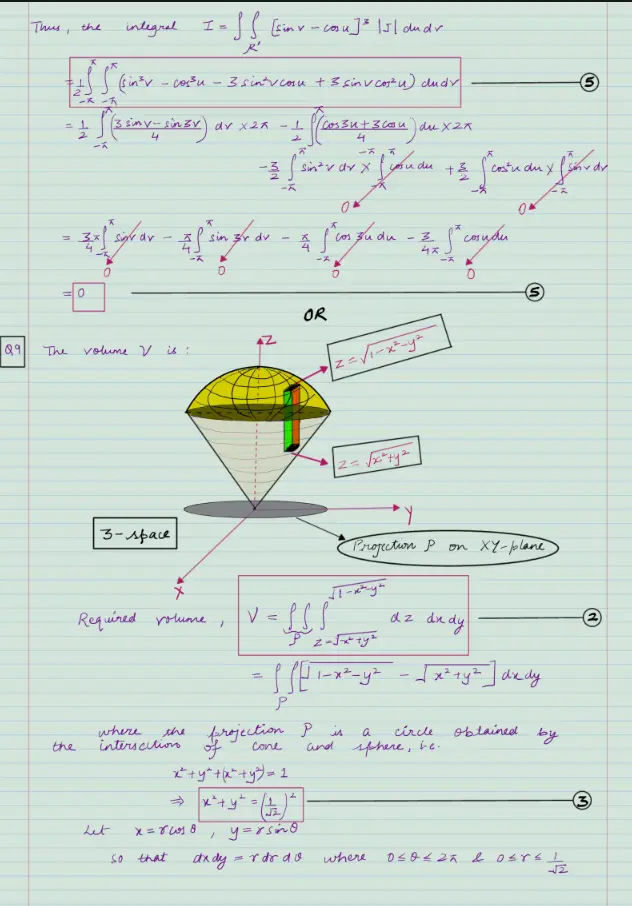 Thus, the integral I = ∫∫_R' [sin v − cos u]³ |J| du dv
= 1/2 ∫_{-π}^{π} ∫_{-π}^{π} (sin³v − cos³u − 3 sin²v cos u + 3 sin v cos²u) du dv ——— 5
= 1/2 ∫_{-π}^{π} (3 sin v − sin 3v / 4) dv × 2π − 1/2 ∫_{-π}^{π} (cos 3u + 3 cos u / 4) du × 2π
− 3/2 ∫_{-π}^{π} sin²v dv × ∫_{-π}^{π} cos u du + 3/2 ∫_{-π}^{π} cos²u du × ∫_{-π}^{π} sin v dv
0 0
= 3π/4 ∫_{-π}^{π} sin v dv − π/4 ∫_{-π}^{π} sin 3v dv − π/4 ∫_{-π}^{π} cos 3u du − 3/4π ∫_{-π}^{π} cos u du
0 0 0 0
= 0 ——— 5
OR
Q9 The volume V is :
Z
z = √(1−x²−y²)
z = √(x²+y²)
Y
3-space
Projection P on XY-plane
X
Required volume, V = ∫∫_P ∫_{z=√(x²+y²)}^{√(1−x²−y²)} dz dx dy ——— 2
= ∫∫_P [√(1−x²−y²) − √(x²+y²)] dx dy
where the projection P is a circle obtained by
the intersection of cone and sphere, i.e.
x²+y²+(x²+y²) = 1
⇒ x²+y² = (1/√2)² ——— 3
Let x = r cos θ , y = r sin θ
so that dx dy = r dr dθ where 0 ≤ θ ≤ 2π & 0 ≤ r ≤ 1/√2